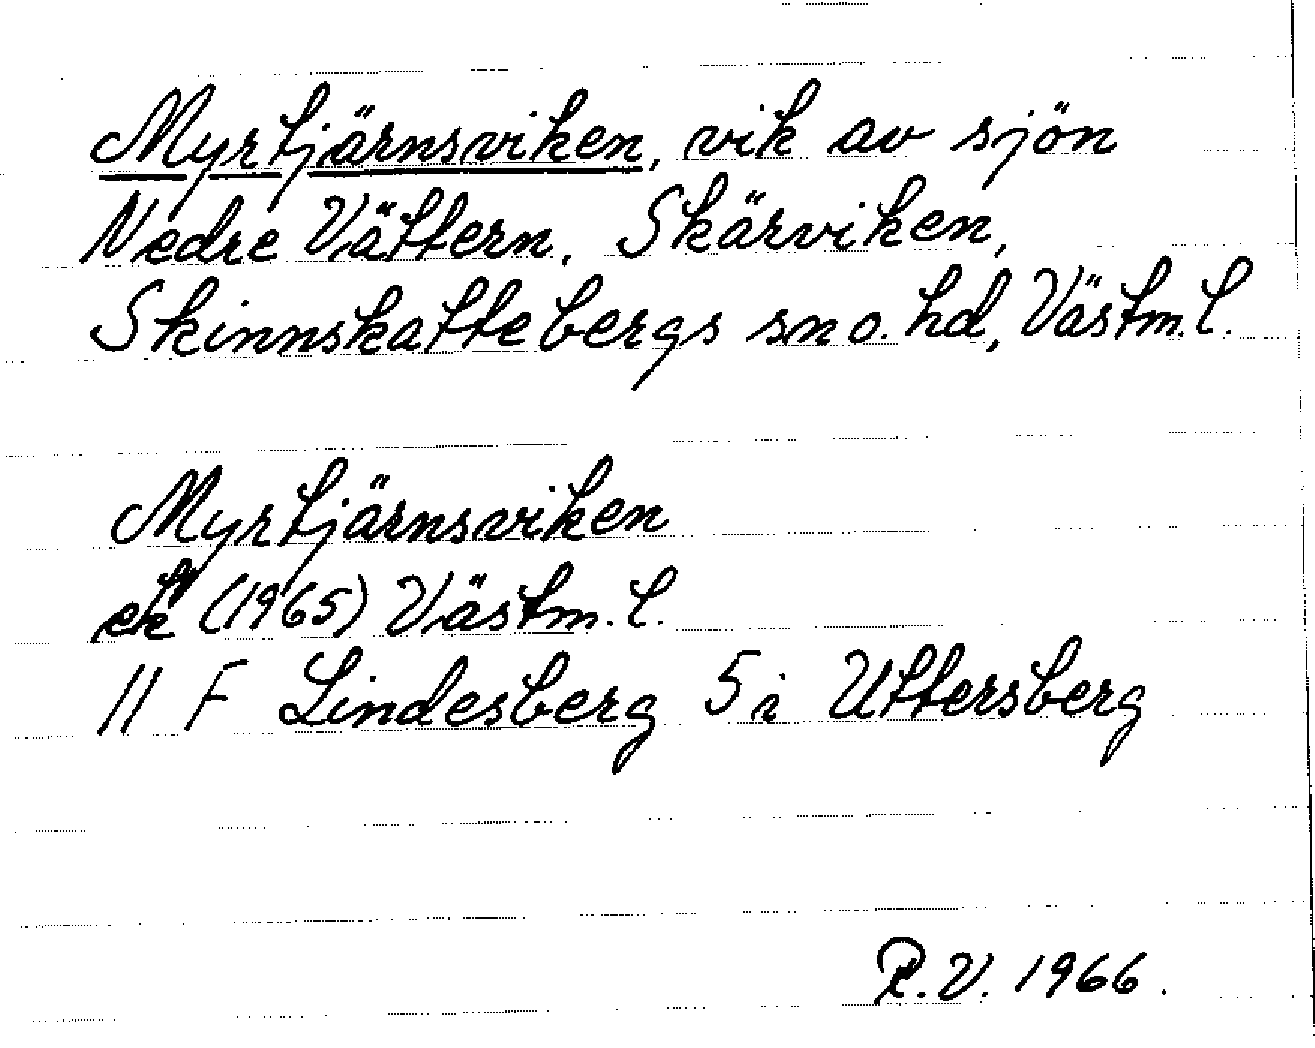 Myrtjärnsviken, vik av sjön
Nedre Vättern, Skärviken,
Skinnskattebergs sn o. hd, Västm. l.
Myrtjärnsviken
ek (1965) Västm. l.
11 F Lindesberg 5 i Uttersberg
R.V. 1966.